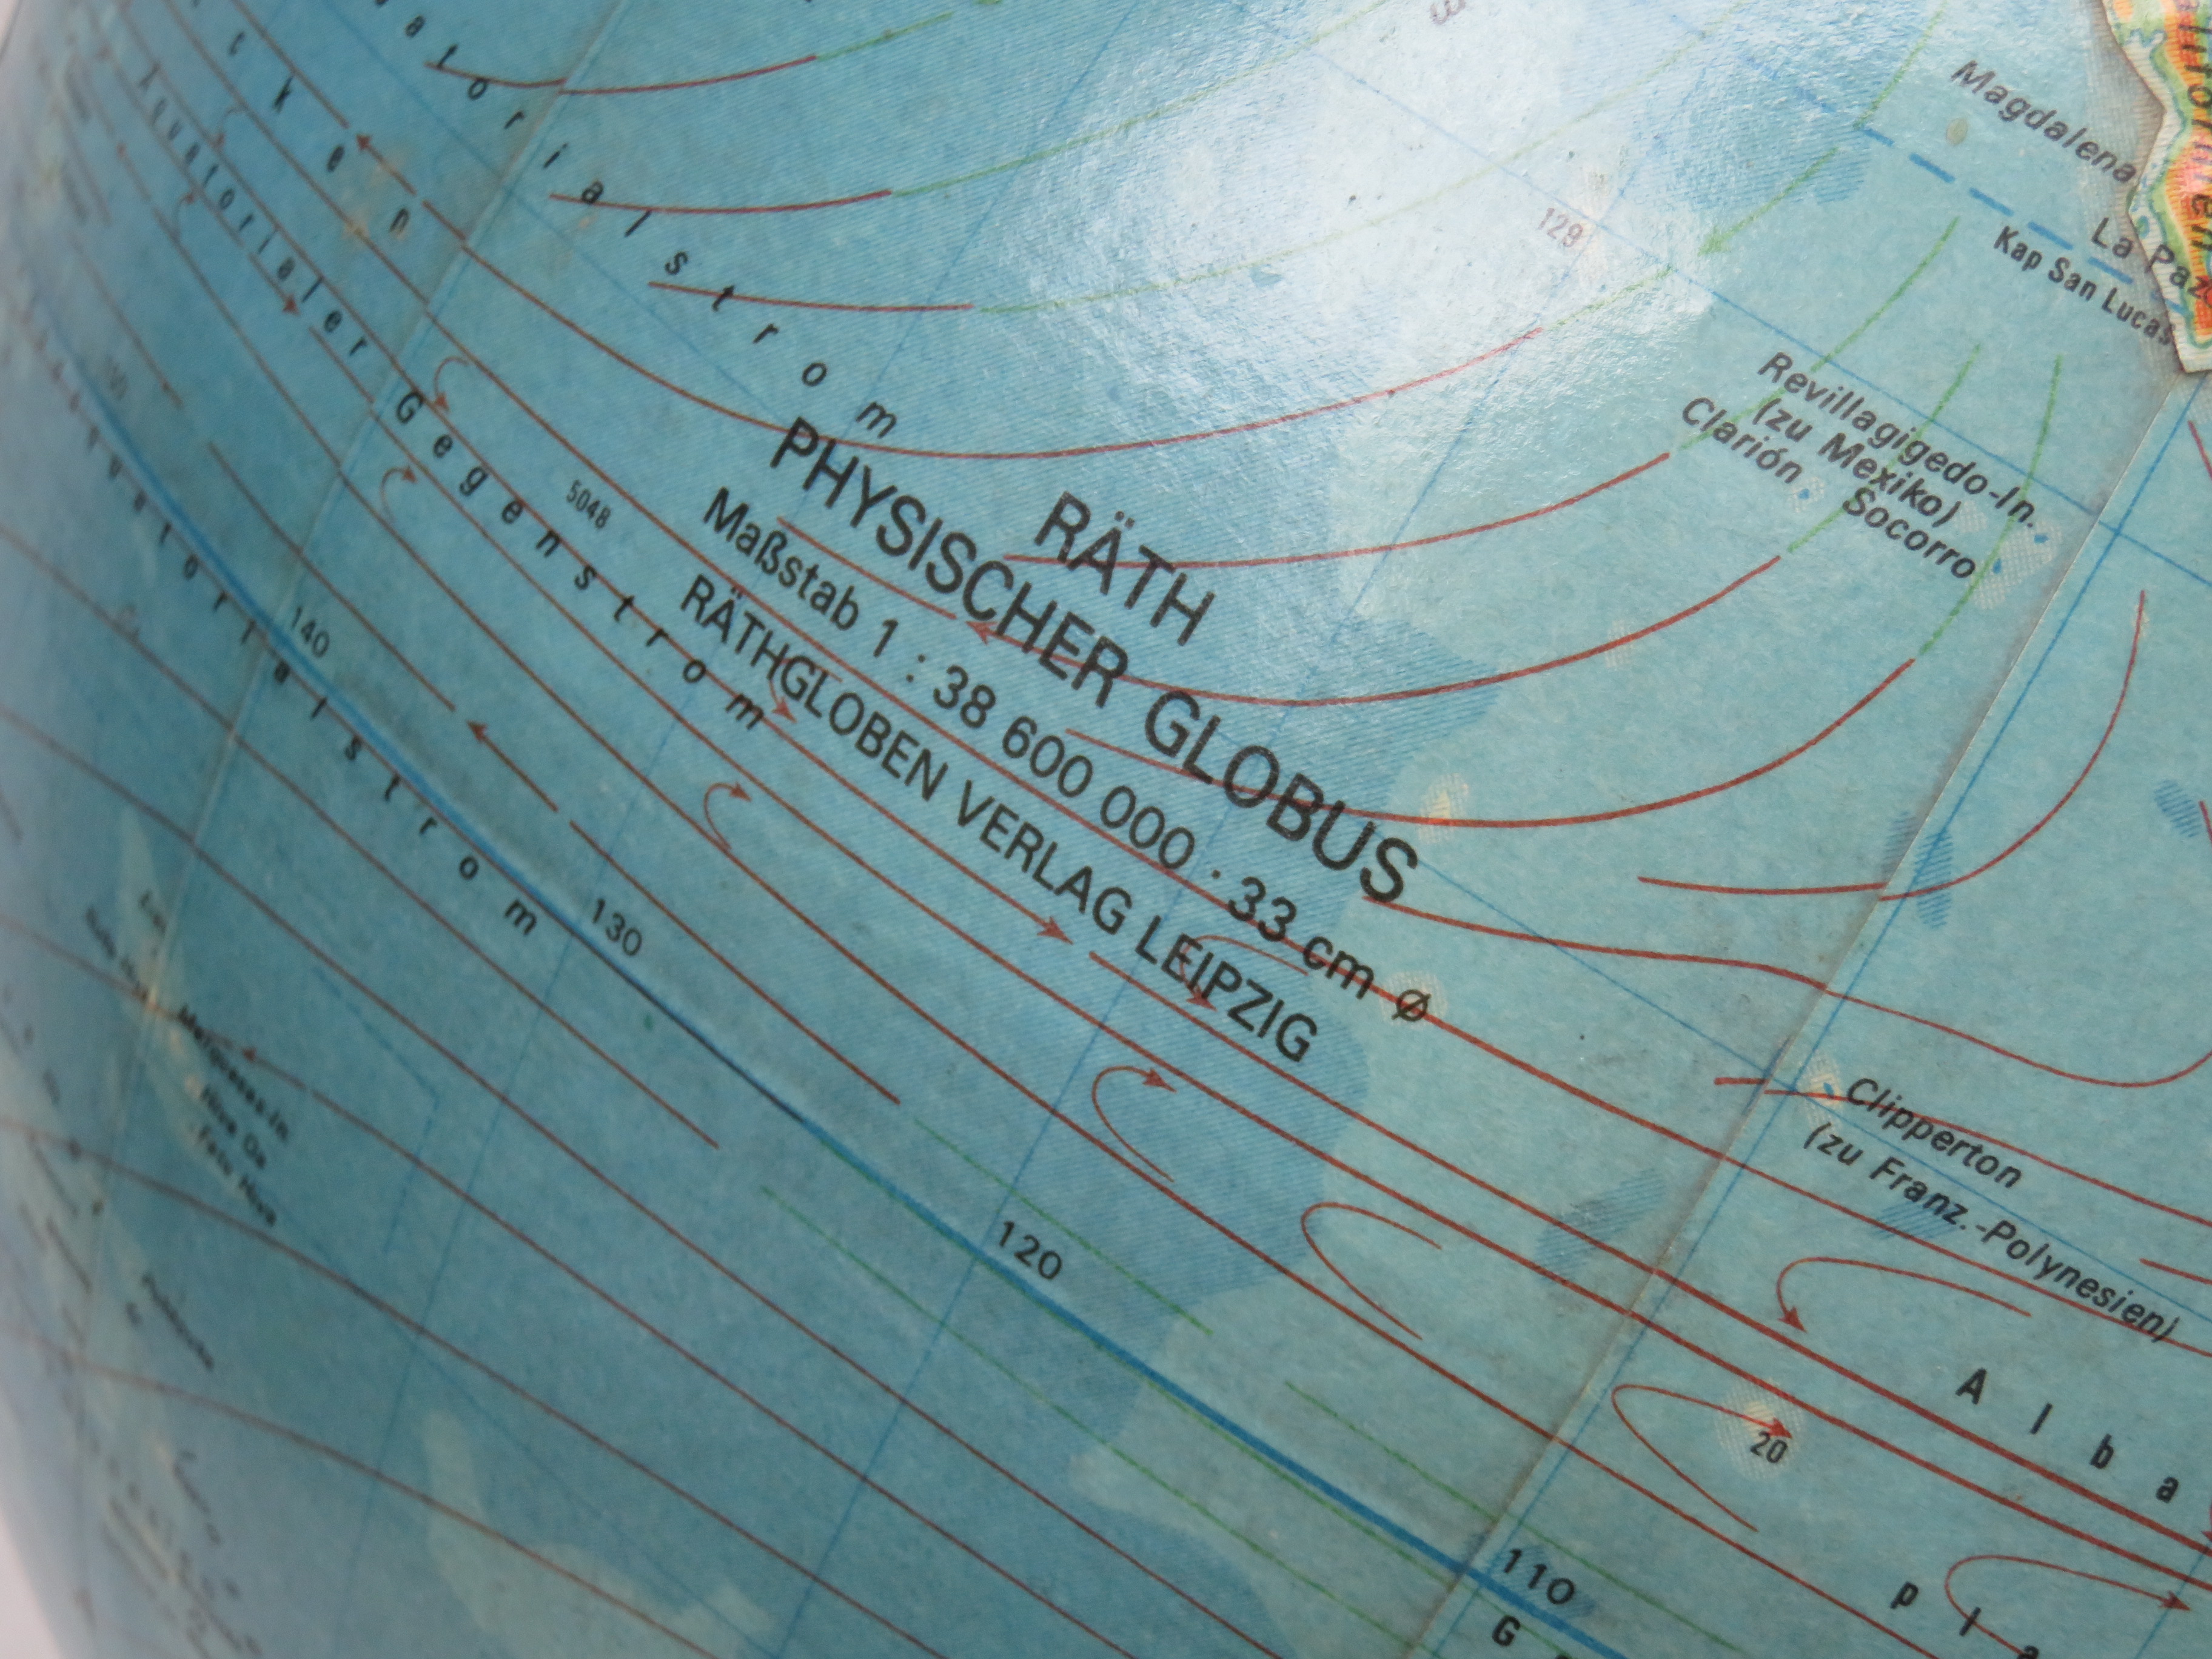 RÄTH
PHYSISCHER GLOBUS
Maßstab 1 : 38 600 000 · 33 cm ø
RÄTHGLOBEN VERLAG LEIPZIG
Magdalena
La Paz
Kap San Lucas
Revillagigedo-In.
(zu Mexiko)
Clarión
Socorro
129
5048
Clipperton
(zu Franz.-Polynesien)
atorialstrom
cken
Äquatorialer Gegenstrom
quatorialstrom
140
130
120
110
20
Alba
pla
G
Marquesas-In.
Hiva Oa
Fatu Hiva